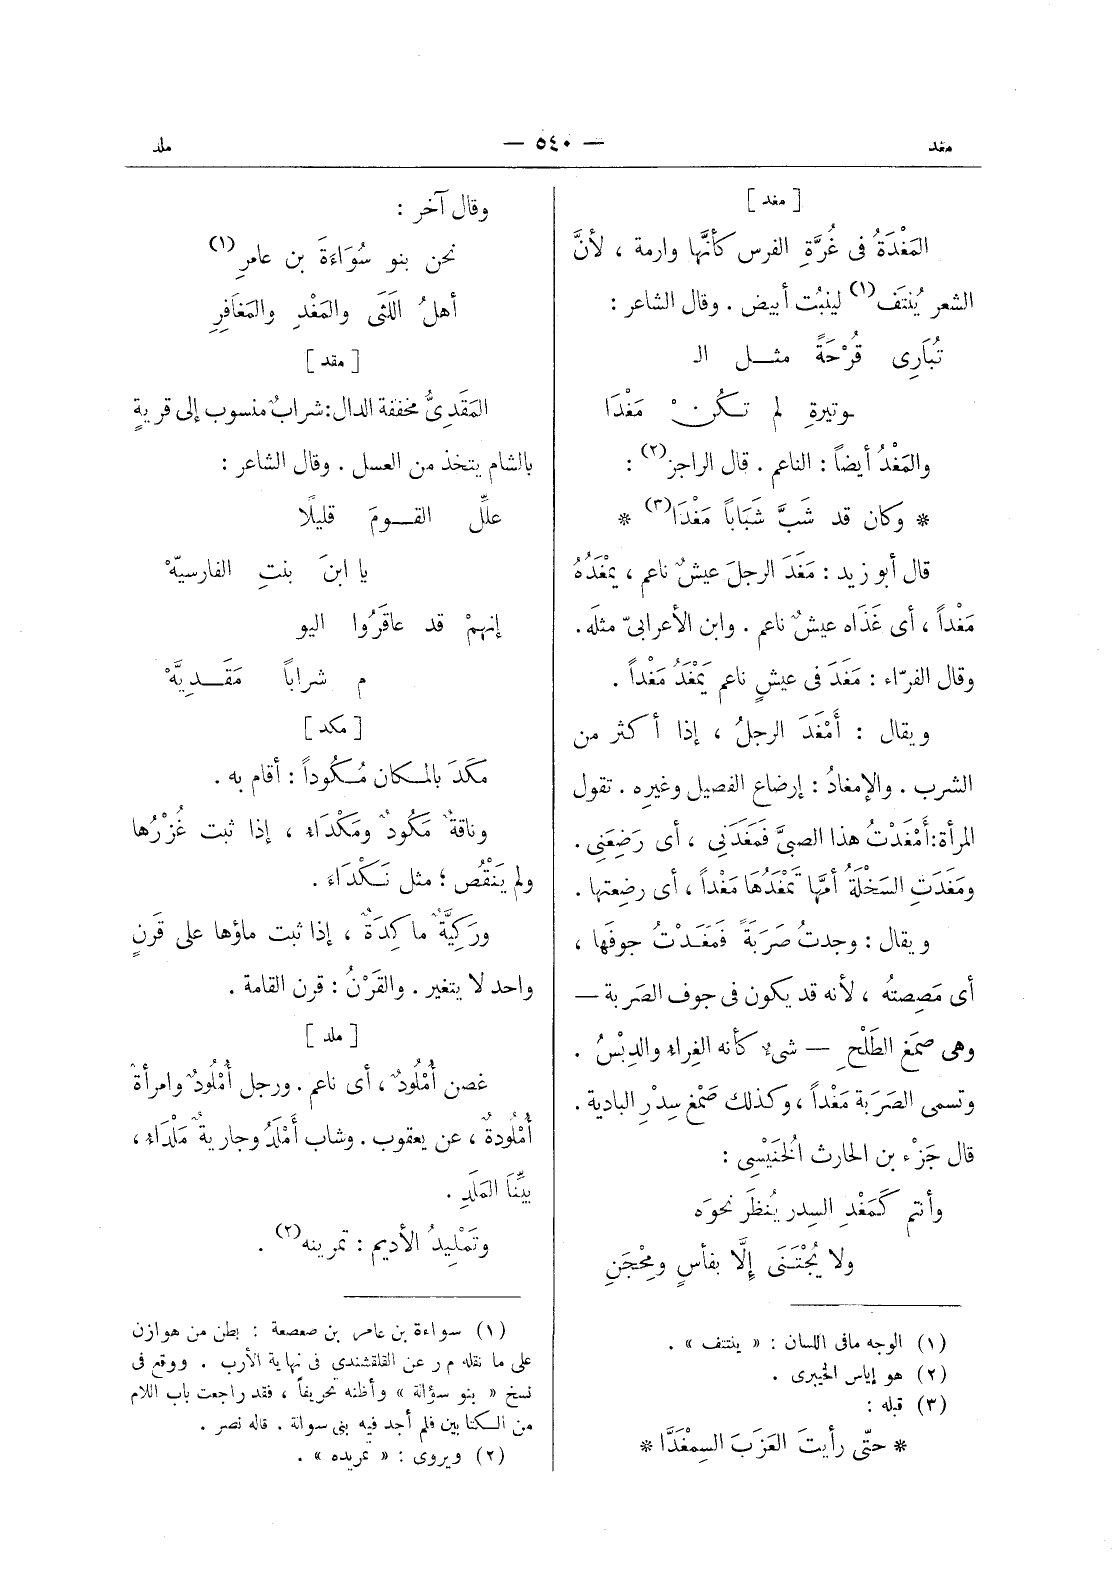 مغد
— ٥٤٠ —
ملد
[ مغد ]
المَغْدَةُ فى غُرَّةِ الفرس كأنَّها وارمة ، لأنَّ
الشعر يُنتَف(١) لينبُت أبيض . وقال الشاعر :
تُبَارِى قُرْحَةً مثــل الـ
ـوتيرةِ لم تـكُنْ مَغْدَا
والمَغْدُ أيضاً : الناعم . قال الراجز(٢) :
* وكان قد شَبَّ شَبَاباً مَغْدَا(٣) *
قال أبو زيد : مَغَدَ الرجلَ عيشٌ ناعم ، يمْغَدُهُ
مَغْداً ، أى غَذَاه عيشٌ ناعم . وابن الأعرابىّ مثله.
وقال الفرّاء : مَغَدَ فى عيشٍ ناعم يَمْغَدُ مَغْداً .
ويقال : أَمْغَدَ الرجلُ ، إذا أكثر من
الشرب . والإمغادُ : إرضاع الفصيل وغيره . تقول
المرأة:أَمْغَدْتُ هذا الصبىَّ فَمَغَدَنِى ، أى رَضِعَنِى .
ومَغَدَتِ السَخْلَةُ أمَّها تَمْغَدُهَا مَغْداً ، أى رضِعتها .
ويقال : وجدتُ صَرَبَةً فَمَغَـدْتُ جوفَها ،
أى مَصِصتهُ ، لأنه قد يكون فى جوف الصَرَبة —
وهى صمَغ الطَلْحِ — شىءٌ كأنه الغِراء والدِبْسُ .
وتسمى الصَرَبة مَغْداً ، وكذلك صَمْغ سِدْرِ البادية .
قال جَزْء بن الحارث الخُنَيْسِى :
وأنتم كَمَغْدِ السِدرِ يُنظَر نحوَه
ولا يُجْتَـنَى إلَّا بفأسٍ ومِحْجَنِ
(١) الوجه مافى اللسان : « ينتتف » .
(٢) هو إياس الخيبرى .
(٣) قبله :
* حتّى رأيتَ العَزَبَ السِمْغَدَّا *
وقال آخر :
نحن بنو سُوَاءَةَ بن عامرِ(١)
أهلُ اللَثَى والمَغْدِ والمَغَافِرِ
[ مقد ]
المَقَدِىُّ مخففة الدال:شرابٌ منسوب إلى قريةٍ
بالشام يتخذ من العسل . وقال الشاعر :
علِّلِ القــومَ قليلًا
يا ابنَ بنتِ الفارسيّهْ
إنهمْ قد عاقَرُوا اليو
م شراباً مَقَــدِيَّهْ
[ مكد ]
مكَدَ بالمكان مُكُوداً : أقام به .
وناقةٌ مَكُودٌ ومَكْدَاء ، إذا ثبت غُزْرُها
ولم يَنْقُص ؛ مثل نَـكْدَاءَ .
ورَكِيَّةٌ ماكِدَةٌ ، إذا ثبت ماؤها على قَرنٍ
واحد لا يتغير . والقَرْنُ : قرن القامة .
[ ملد ]
غصن أُمْلُودٌ ، أى ناعم . ورجل أُمْلُودٌ وامرأة
أُمْلُودةٌ ، عن يعقوب . وشاب أَمْلَدُ وجاريةٌ مَلْدَاء ،
بيِّنَا المَلَدِ .
وتَمْلِيدُ الأديم : تمرينه(٢) .
(١) سواءة بن عامر بن صعصعة : بطن من هوازن
على ما نقله م ر عن القلقشندى فى نهاية الأرب . ووقع فى
نسخ « بنو سؤالة » وأظنه تحريفاً ، فقد راجعت باب اللام
من الكتابين فلم أجد فيه بنى سوالة . قاله نصر .
(٢) ويروى : « تمريده » .